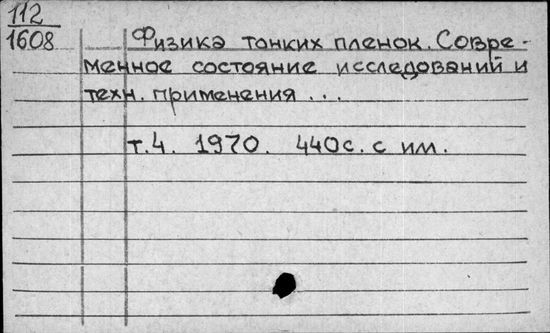 112
1608
Физика тонких пленок. Совре-
менное состояние исследований и
техн. применения ...
т.4. 1970. 440с. с ил.